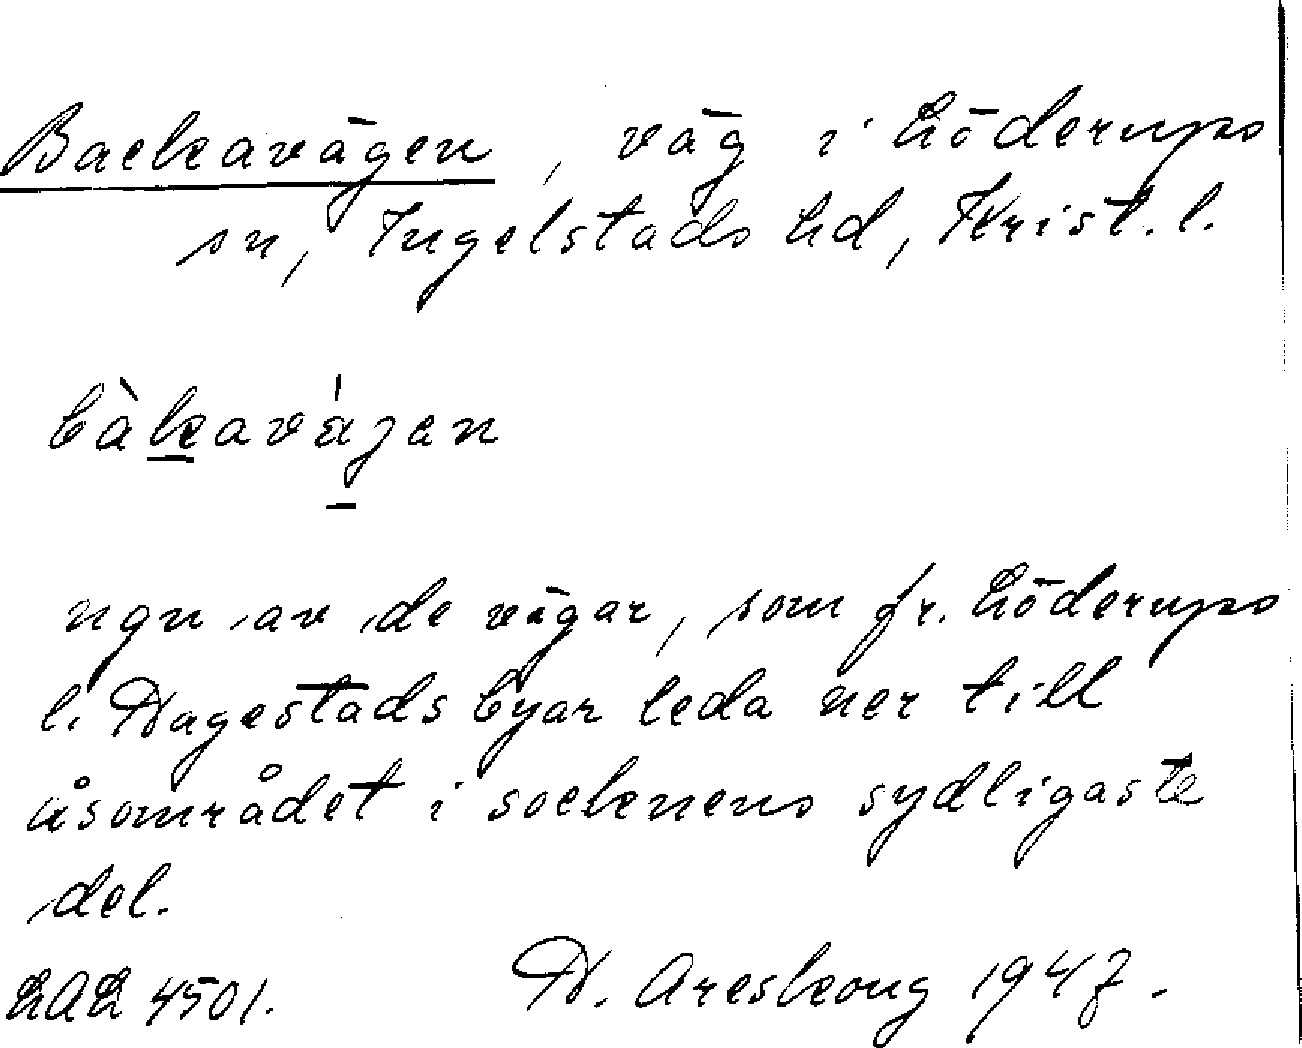 Backavägen, väg i Löderups
sn, Ingelstads hd, Krist. l.
bàkavá̈gen
ngn av de vägar, som fr. Löderups
l. Hagestads byar leda ner till
åsområdet i socknens sydligaste
del.
LAL 4501. H. Areskoug 1947.